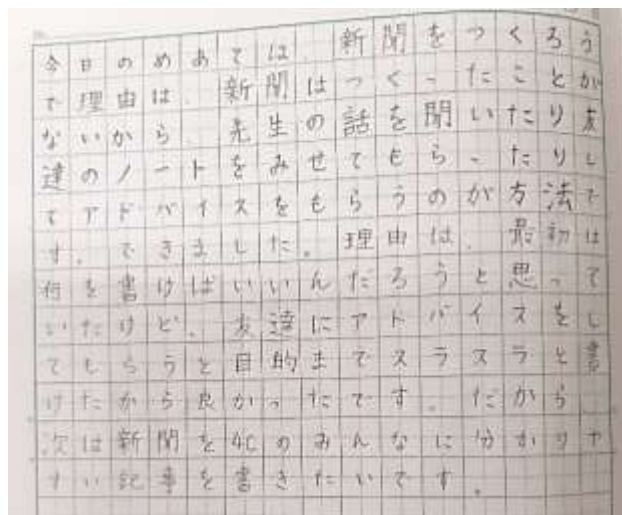 今日のめあては、新聞をつくろう
で理由は、新聞はつくったことが
ないから、先生の話を聞いたり友
達のノートをみせてもらったりし
てアドバイスをもらうのが方法で
す。できました。理由は、最初は
何を書けばいいんだろうと思って
いたけど、友達にアドバイスをし
てもらうと目的までスラスラと書
けたから良かったです。だから
次は新聞を4Cのみんなに分かりや
すい記事を書きたいです。